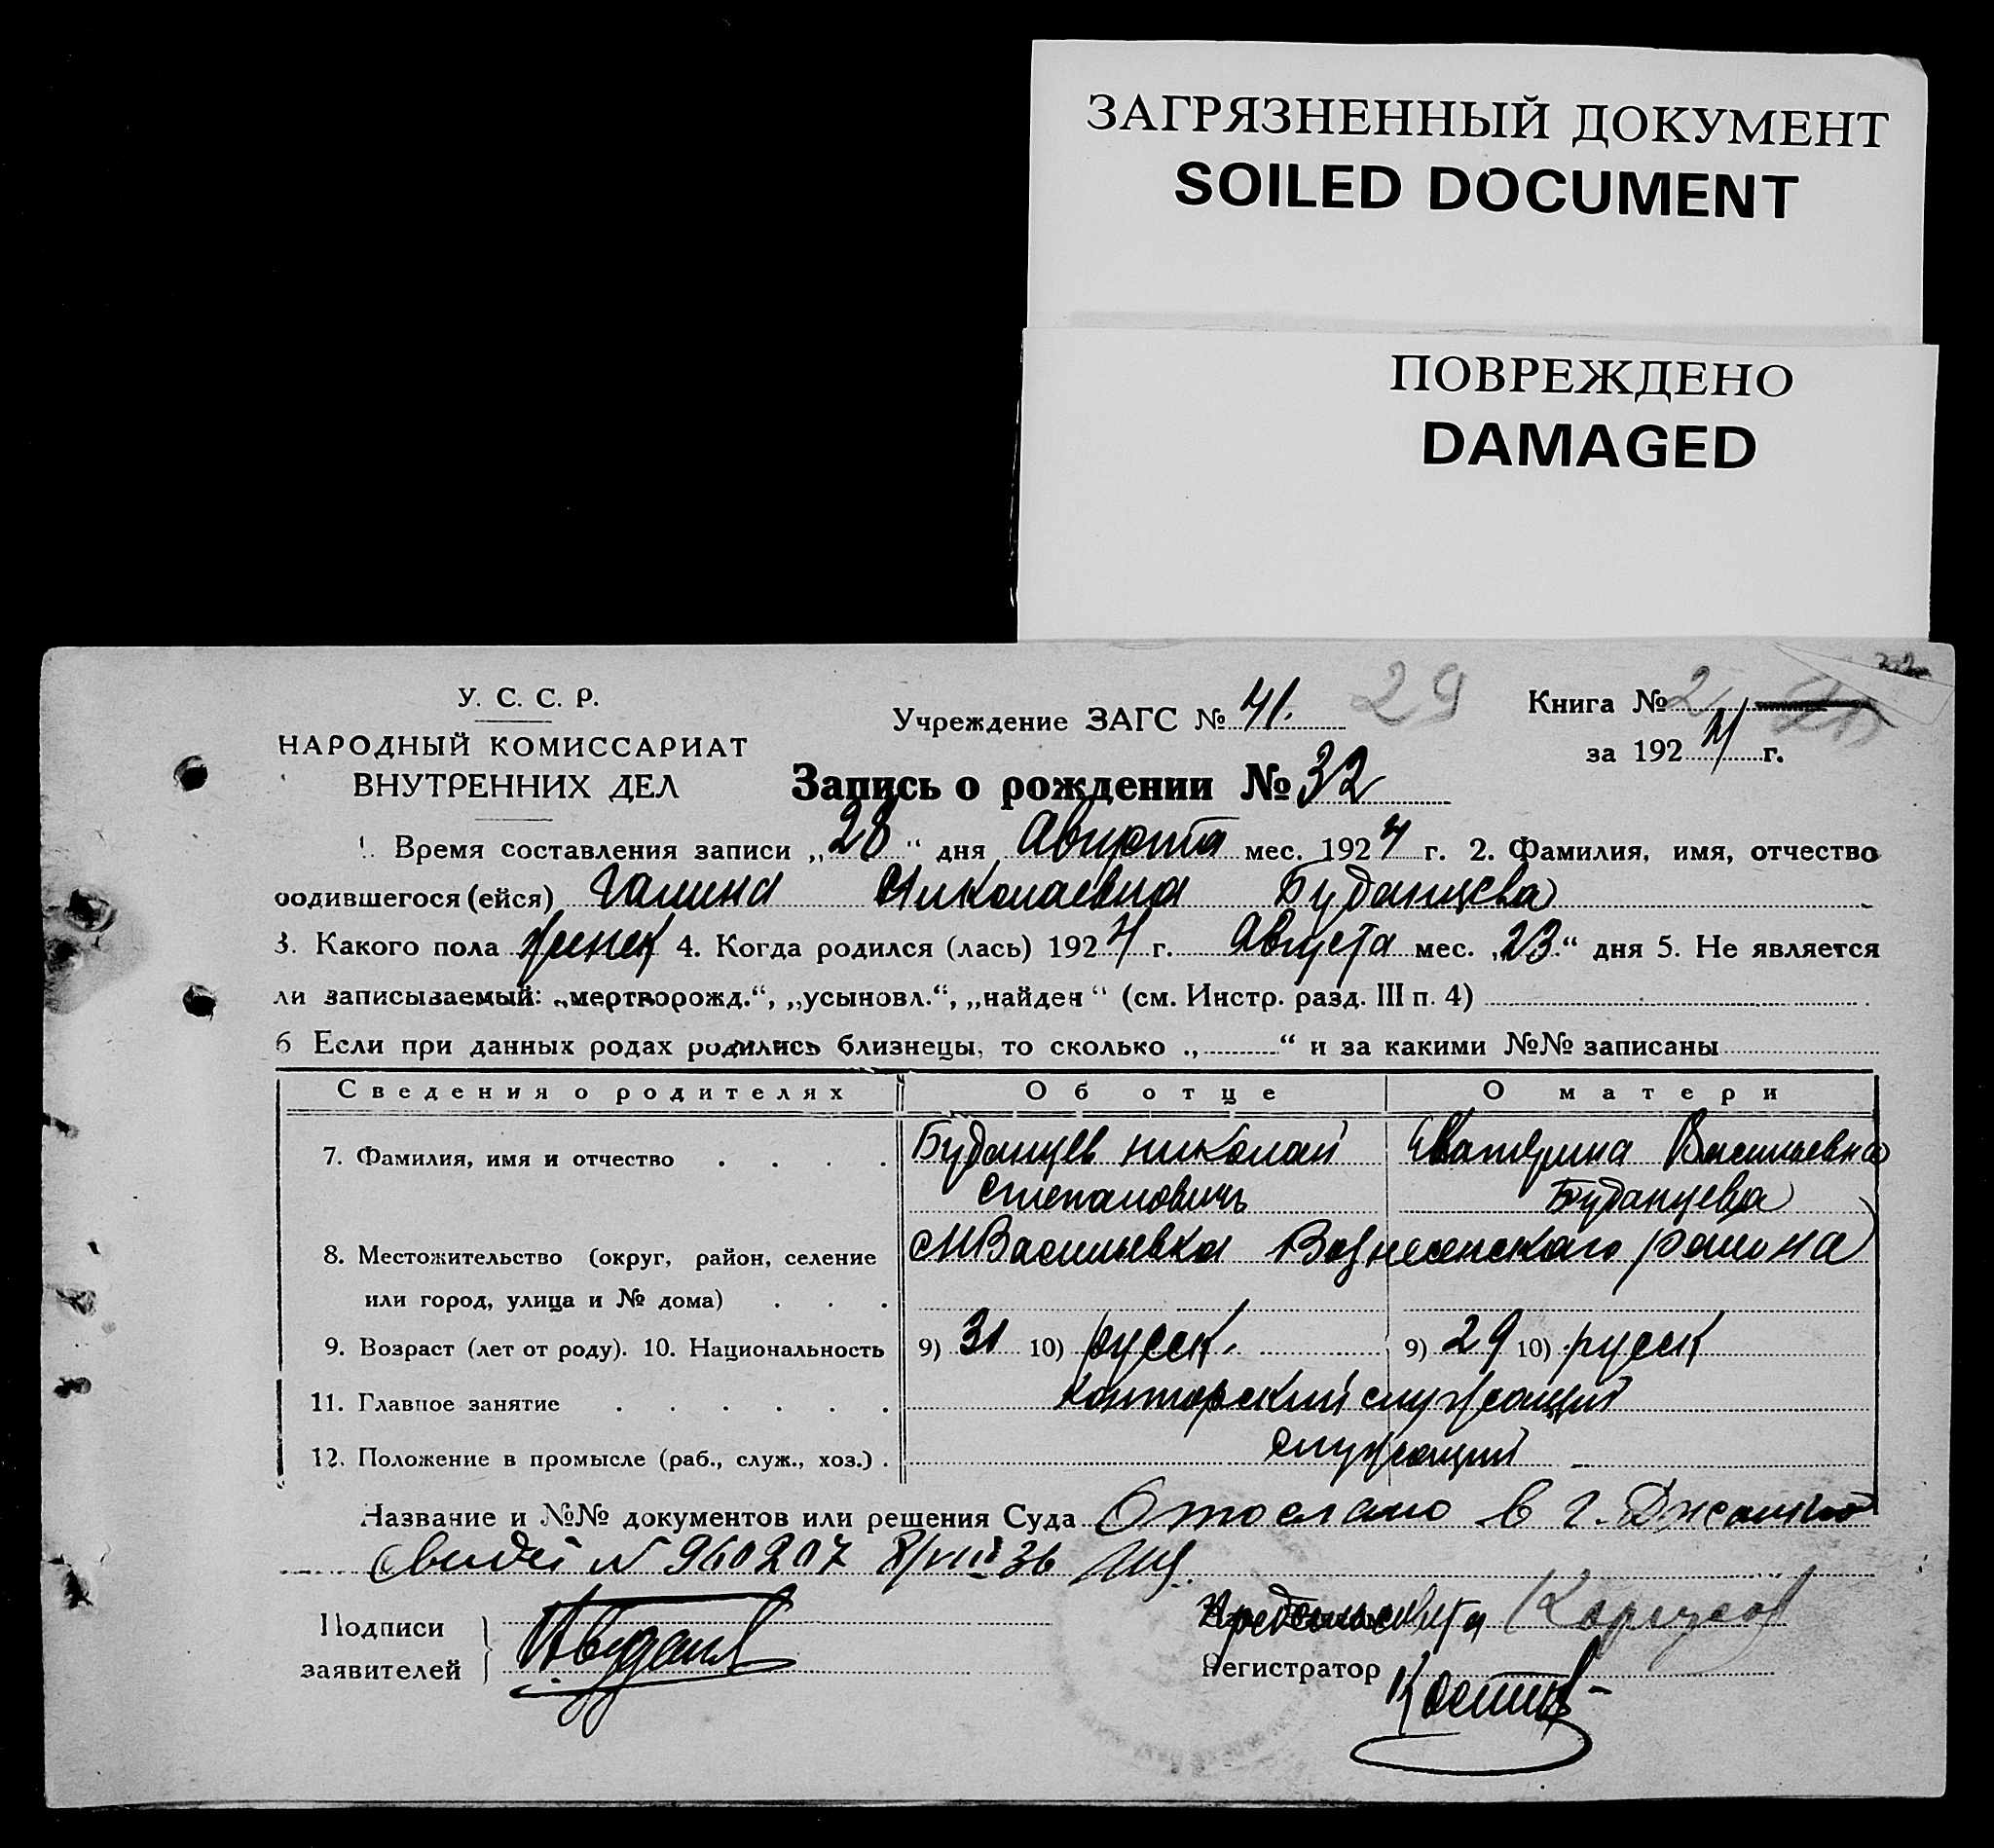 ЗАГРЯЗНЕННЫЙ ДОКУМЕНТ
SOILED DOCUMENT
ПОВРЕЖДЕНО
DAMAGED
У. С. С. Р.
НАРОДНЫЙ КОМИССАРИАТ
ВНУТРЕННИХ ДЕЛ
Учреждение ЗАГС № 41. 29
Книга № 2
за 1924 г.
Запись о рождении № 32
1. Время составления записи „28“ дня Августа мес. 1924 г. 2. Фамилия, имя, отчество
родившегося (ейся) Галина Николаевна Буданцева
3. Какого пола женск 4. Когда родился (лась) 1924 г. Августа мес. „23“ дня 5. Не является
ли записываемый: „мертворожд.“, „усыновл.“, „найден“ (см. Инстр. разд. III п. 4)
6 Если при данных родах родились близнецы, то сколько „ “ и за какими №№ записаны
Сведения о родителях Об отце О матери
7. Фамилия, имя и отчество Буданцев Николай Екатерина Васильевна
Степановичъ Буданцева
8. Местожительство (округ, район, селение Васильевка Вознесенскаго района
или город, улица и № дома)
9. Возраст (лет от роду). 10. Национальность 9) 31 10) русск. 9) 29 10) русск
11. Главное занятие конторский служащий
12. Положение в промысле (раб., служ., хоз.) служащий
Название и №№ документов или решения Суда Отослано в г.
Свидет N 960207 8/VIII 36
Подписи
заявителей
Регистратор